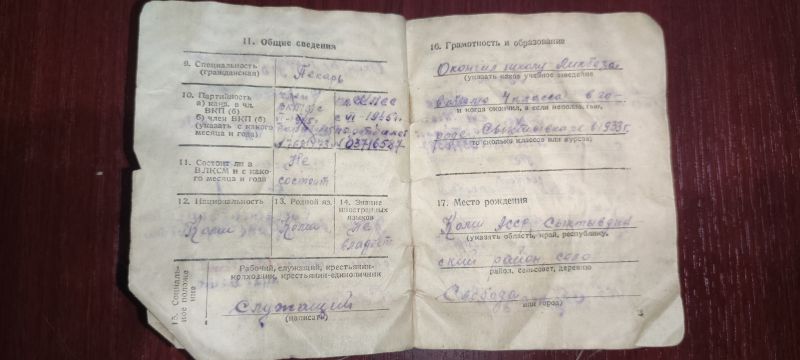 11. Общие сведения
9. Специальность
(гражданская)
Пекарь
10. Партийность
а) канд. в чл.
ВКП (б)
б) член ВКП (б)
(указать с какого
месяца и года)
03716537
11. Состоит ли в
ВЛКСМ и с како-
го месяца и года
Не
состоит
12. Национальность
Коми
13. Родной яз.
Коми
14. Знание
иностранных
языков
Не
владеет
15. Социаль-
ное положе-
ние
Рабочий, служащий, крестьянин-
колхозник, крестьянин-единоличник
Служащий
(написать)
16. Грамотность и образование
Окончил школу Ликбеза
(указать какое учебное заведение
4 класса в го-
и когда окончил, а если неполностью,
роде Сыктывкаре в 1933 г.
то сколько классов или курсов)
17. Место рождения
Коми АССР, Сыктывдин
(указать область, край, республику,
ский район село
район, сельсовет, деревню
Слобода
или город)
3